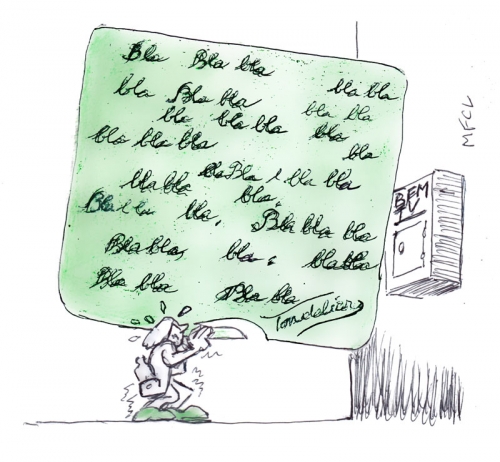 Bla Bla bla
bla bla
bla Bla bla
bla bla
bla bla bla
bla
bla bla bla
bla
bla bla
bla Bla bla bla
bla,
Bla bla
bla,
Bla bla bla
Bla bla,
bla,
bla bla
Bla bla
Bla bla
BEM
TV
MFCL